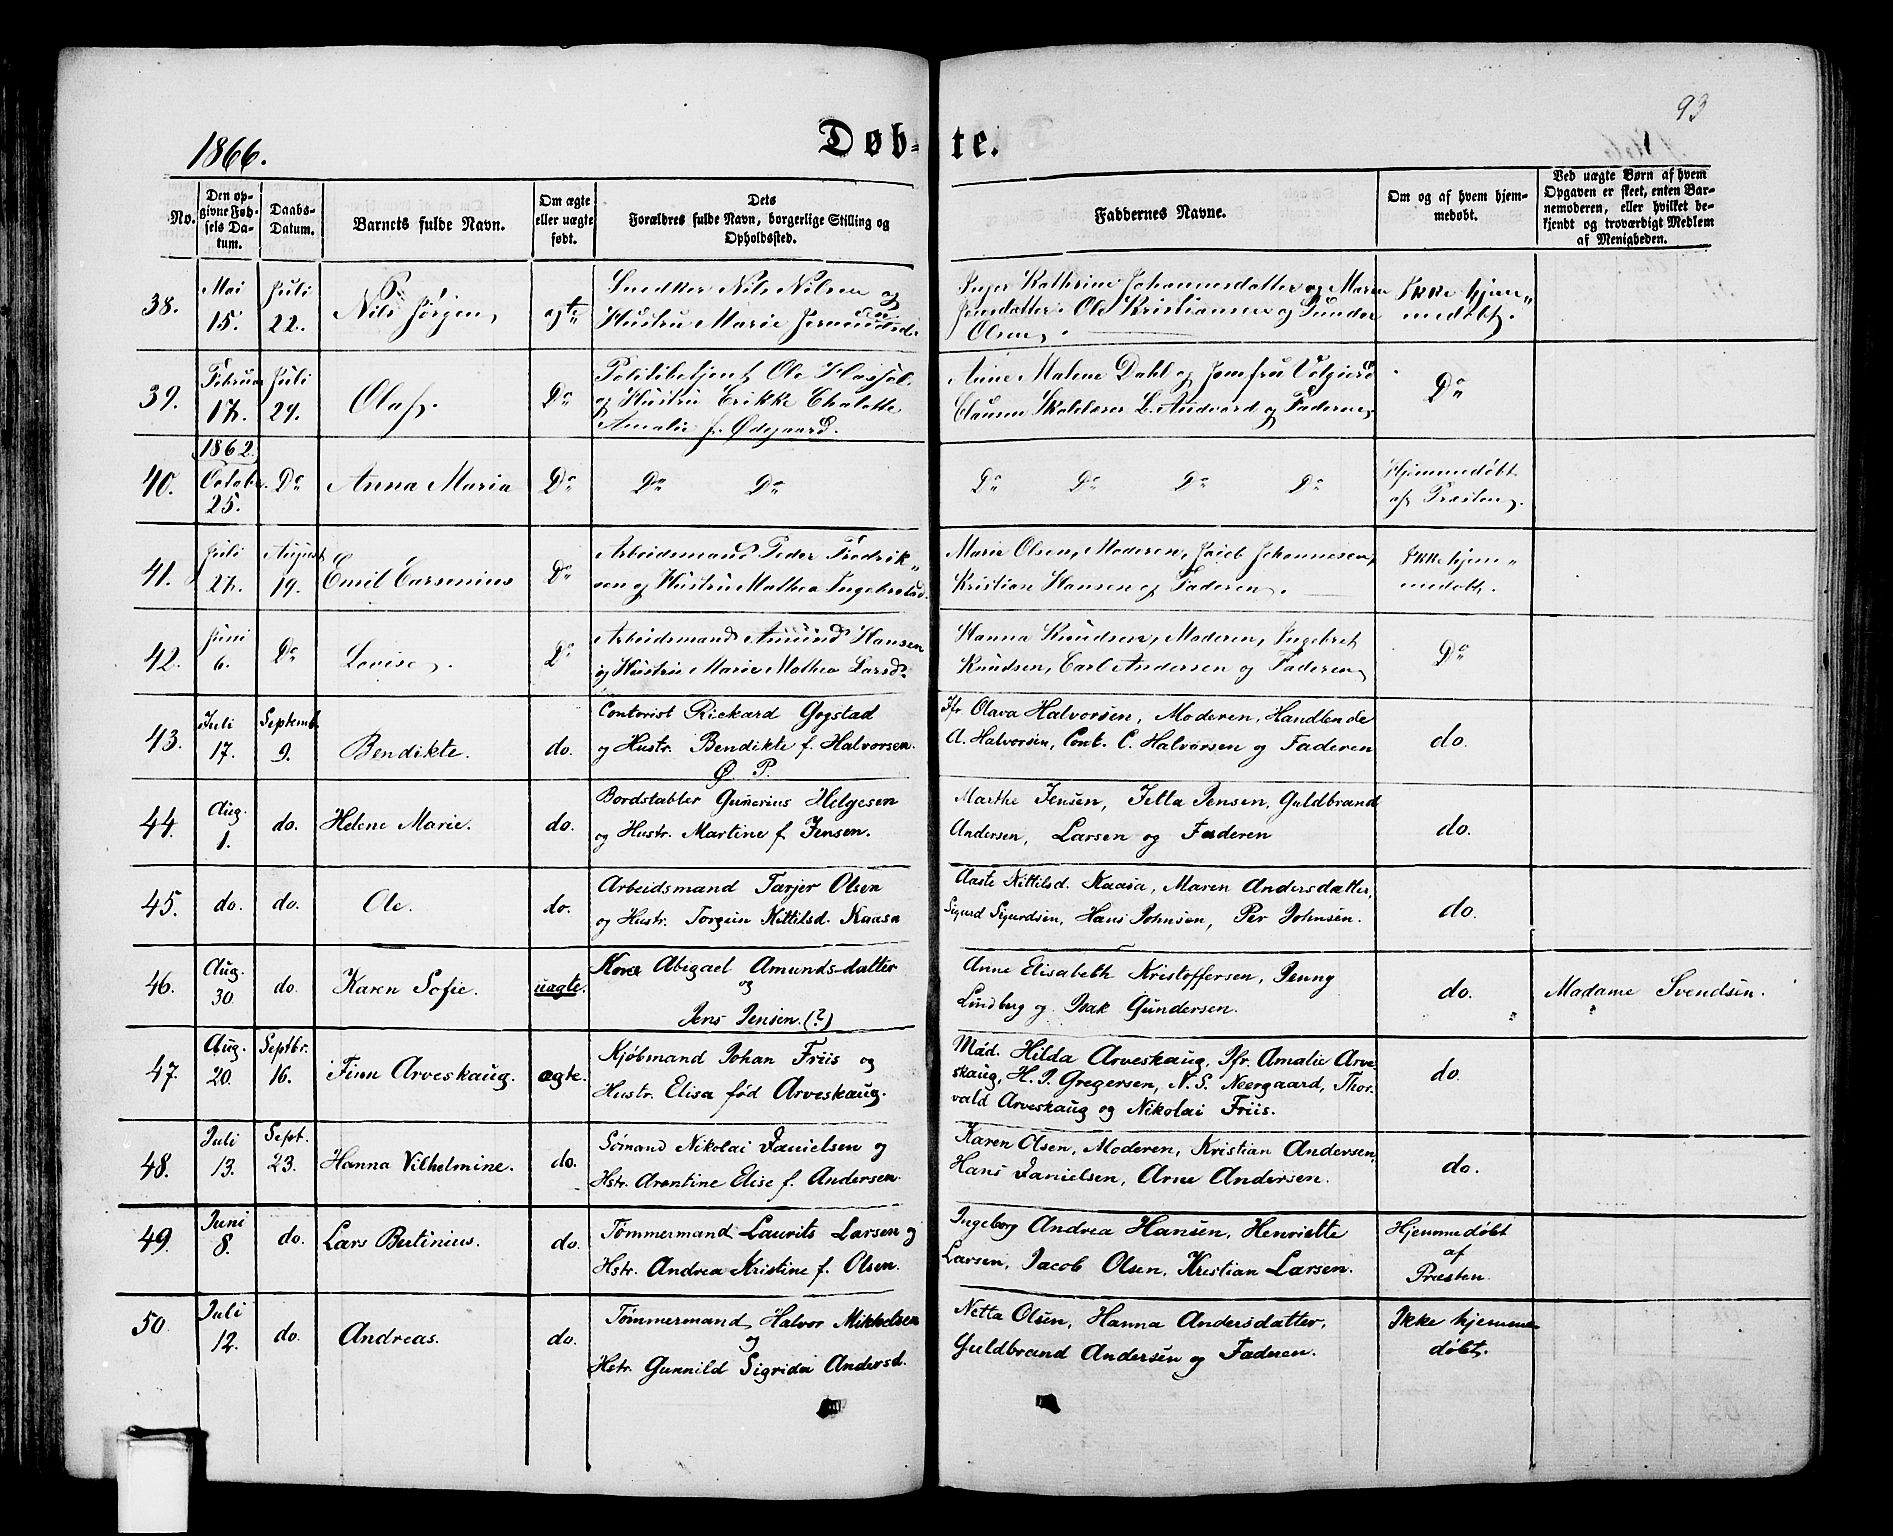 93
1866.
Døb-te.
No.
Den op-
givne Fød-
sels Da-
tum.
Daabs-
Datum.
Barnets fulde Navn.
Om ægte
eller uægte
født.
Dets
Forældres fulde Navn, borgerlige Stilling og
Opholdssted.
Faddernes Navne.
Om og af hvem hjem-
medøbt.
Ved uægte Børn af hvem
Opgaven er skeet, enten Bar-
nemoderen, eller hvilket be-
kjendt og troværdigt Medlem
af Menigheden.
38.
Mai
15.
Juli
22.
Nils Jørgen,
ægte
Snedker Nils Nilsen og
Hustru Marie
Inger Kathrine Johannesdatter og Maren
Jensdatter. Ole Kristiansen og Gunder
Olsen,
Ikke hjem-
medøbt.
39.
Februar
17.
Juli
29.
Olaf.
Do
Politibetjent Ole
og Hustru Erikke Chalotte
Amalie f. Ødegaard.
Anne Malene Dahl og Jomfru
Clausen Skolelærer L. Andvord og Faderen,
Do
40.
1862.
October
25.
Do
Anna Maria
Do
Do Do
Do Do Do Do
Hjemmedøbt
af Præsten,
41.
Juli
27.
August
19.
Emil Earsenius
Do
Arbeidsmand Peder Fredrik-
sen og Hustru Mathea
Marie Olsen, Moderen, Jacob Johannesen,
Kristian Hansen og Faderen.
Ikke hjem-
medøbt.
42.
Juni
6.
Do
Lovise,
Do
Arbeidsmand Amund Hansen
og Hustru Marie Mathea Larsd.
Hanna Knudsen, Moderen, Ingebret
Knudsen, Carl Andersen og Faderen,
Do
43.
Juli
17.
Septemb.
9.
Bendikte.
do.
Contorist Rickard Gogstad
og Hustr. Bendikte f. Halvorsen.
Ø P.
Jfr Olava Halvorsen, Moderen, Handlende
A. Halvorsen, Cont. C. Halvorsen og Faderen
do.
44.
Aug.
1.
do.
Helene Marie.
do.
Bordstabler Gunerius Helgesen
og Hustr. Martine f. Jensen.
Marthe Jensen, Jetta Jensen, Guldbrand
Andersen, Larsen og Faderen
do.
45.
do.
do.
Ole.
do.
Arbeidsmand Tarjer Olsen
og Hustr. Torgein Kittilsd. Kaasa
Aaste Kittilsd. Kaasa, Maren Andersdatter,
Sigurd Sigurdsen, Hans Johnsen, Per Johnsen.
do.
46.
Aug.
30.
do.
Karen Sofie.
uægte.
Abigael Amunds-datter
og
Jens Jensen. (?)
Anne Elisabeth Kristoffersen, Jenny
Lindberg og Isak Gundersen.
do.
Madame Svendsen.
47.
Aug.
20.
Septbr.
16.
Finn Arveskaug.
ægte.
Kjøbmand Johan Friis og
Hustr. Elisa fød Arveskaug.
Mad. Hilda Arveskaug, Jfr. Amalie Arve-
skaug, H. J. Gregersen, N. S. Neergaard, Thor-
vald Arveskaug og Nikolai Friis.
do.
48.
Juli
13.
Sept.
23.
Hanna Vilhelmine.
do.
Sømand Nikolai Danielsen og
Hstr. Arentine Elise f. Andersen.
Karen Olsen, Moderen, Kristian Andersen,
Hans Danielsen, Arne Andersen.
do.
49.
Juni
8.
do.
Lars Bertinius.
do.
Tømmermand Laurits Larsen og
Hstr. Andrea Kristine f. Olsen.
Ingeborg Andrea Hansen, Henriette
Larsen, Jacob Olsen, Kristian Larsen.
Hjemmedøbt
af
Præsten.
50.
Juli
12.
do.
Andreas.
do.
Tømmermand Halvor Mikkelsen
og
Hstr. Gunnild Sigrida Andersd.
Netta Olsen, Hanna Andersdatter,
Guldbrand Andersen og Faderen.
Ikke hjemme-
døbt.